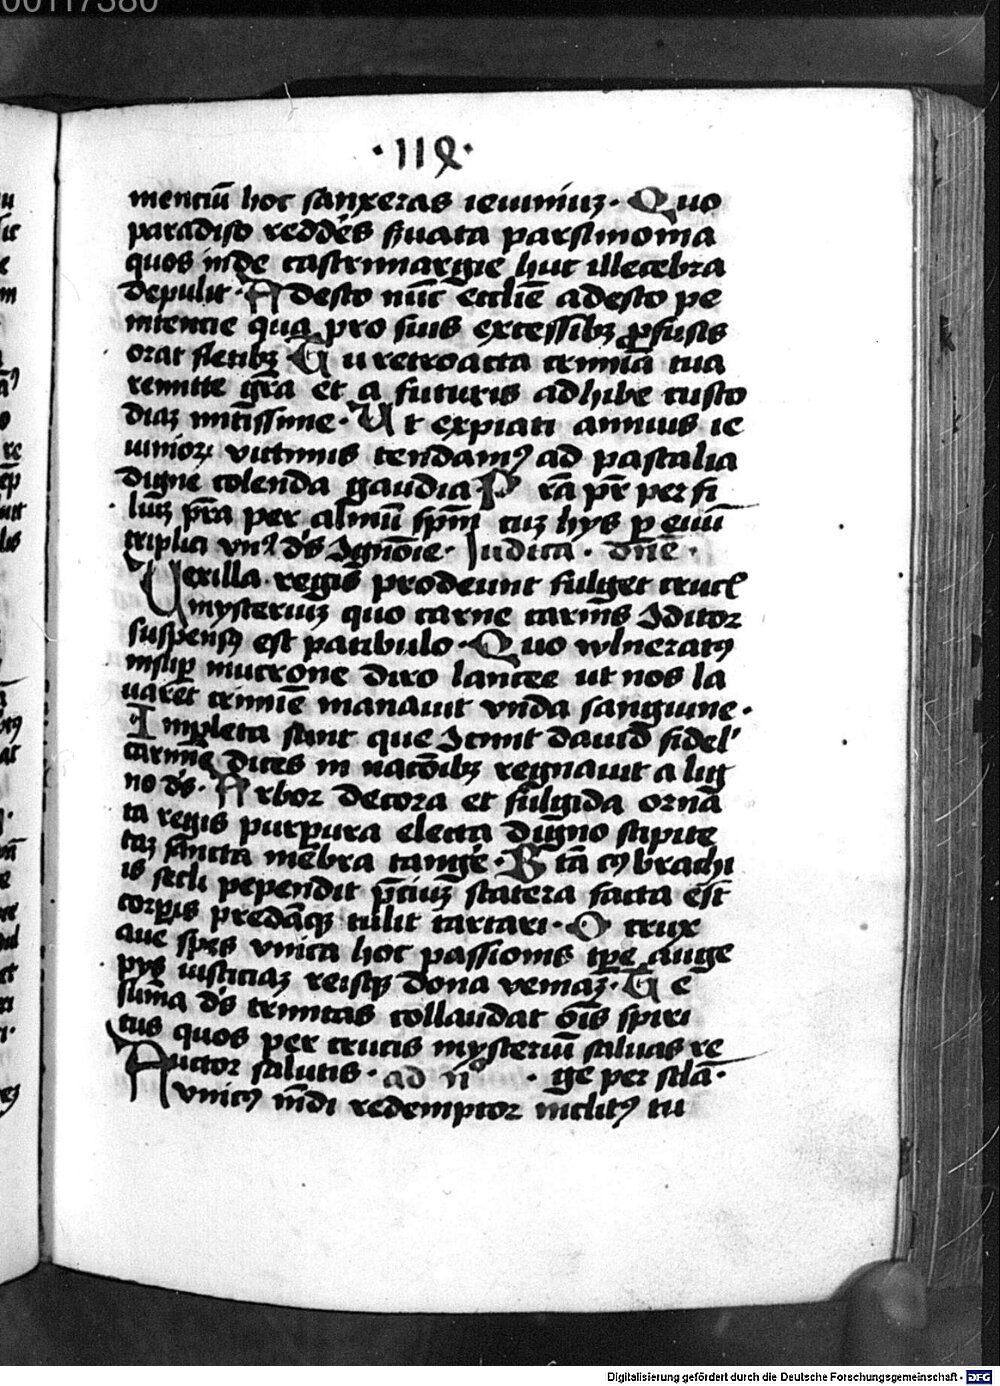 00117380
·119·
mentiū hoc sanxeras ieiuniuȝ · Quo
paradiso reddēs ẜuata parsimonia
quos inde castrimargie huc illecebra
depulit · Adesto nūc ecclīe adesto pe
nitencie qua pro suis excessibȝ ꝓfusis
orat fletibȝ Tu retroacta criminā tua
remitte grā et a futuris adhibe custo
diaȝ mitissime · Ut expiati annuis ie
iunioꝝ victimis tendamꝰ ad pascalia
digne colenda gaudia Prā pr̄ per fi
luȝ prā per almū spm̄ cuȝ hys ꝑ euū
triplici vnꝰ ds̄ Ignōie · Iudica · dn̄e ·
Vexilla regis prodeunt fulget cruc
mysteriuȝ quo carne carnis 9ditor
suspensꝰ est patibulo · Quo wlneratꝰ
insuꝑ mucrone diro lancee ut nos la
uaret crimīe manauit vnda sanguine ·
Impleta sunt que 9cinit dauid fidel
carmīe dices in nacōibȝ regnauit a lig
no ds̄ · Arbor decora et fulgida ornā
ta regis purpura electa digno stipite
taȝ sancta mēbra tangē · Btā cꝰ brachi
is secli pependit p̄ciuȝ statera facta est
corꝑis predāqȝ tulit tartari · O crux
aue spes vnica hoc passionis tꝑe auge
pys iusticiaȝ reisqȝ dona veniaȝ · Te
sum̄a ds̄ trinitas collaudat om̄s spiri
tus quos per crucis mysteriū saluas re
Auctor salutis · ad nō · ge per sclā ·
vnicꝰ mūdi redemptor inclitꝰ tu
Digitalisierung gefördert durch die Deutsche Forschungsgemeinschaft - DFG